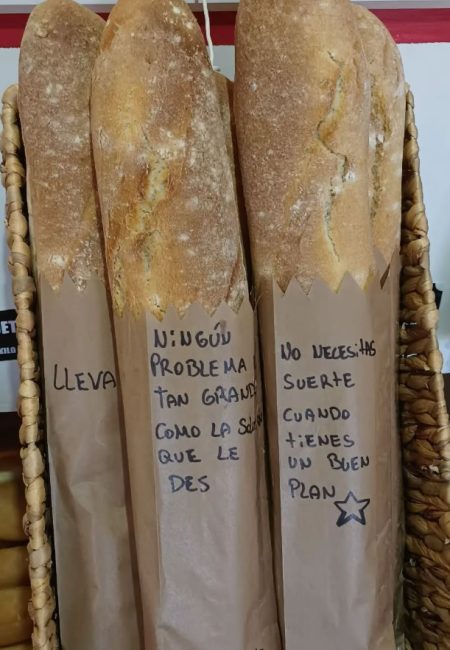 LLEVA
NINGÚN
PROBLEMA
TAN GRAND
COMO LA
QUE LE
DES
NO NECESITAS
SUERTE
CUANDO
tiENES
UN BUEN
PLAN